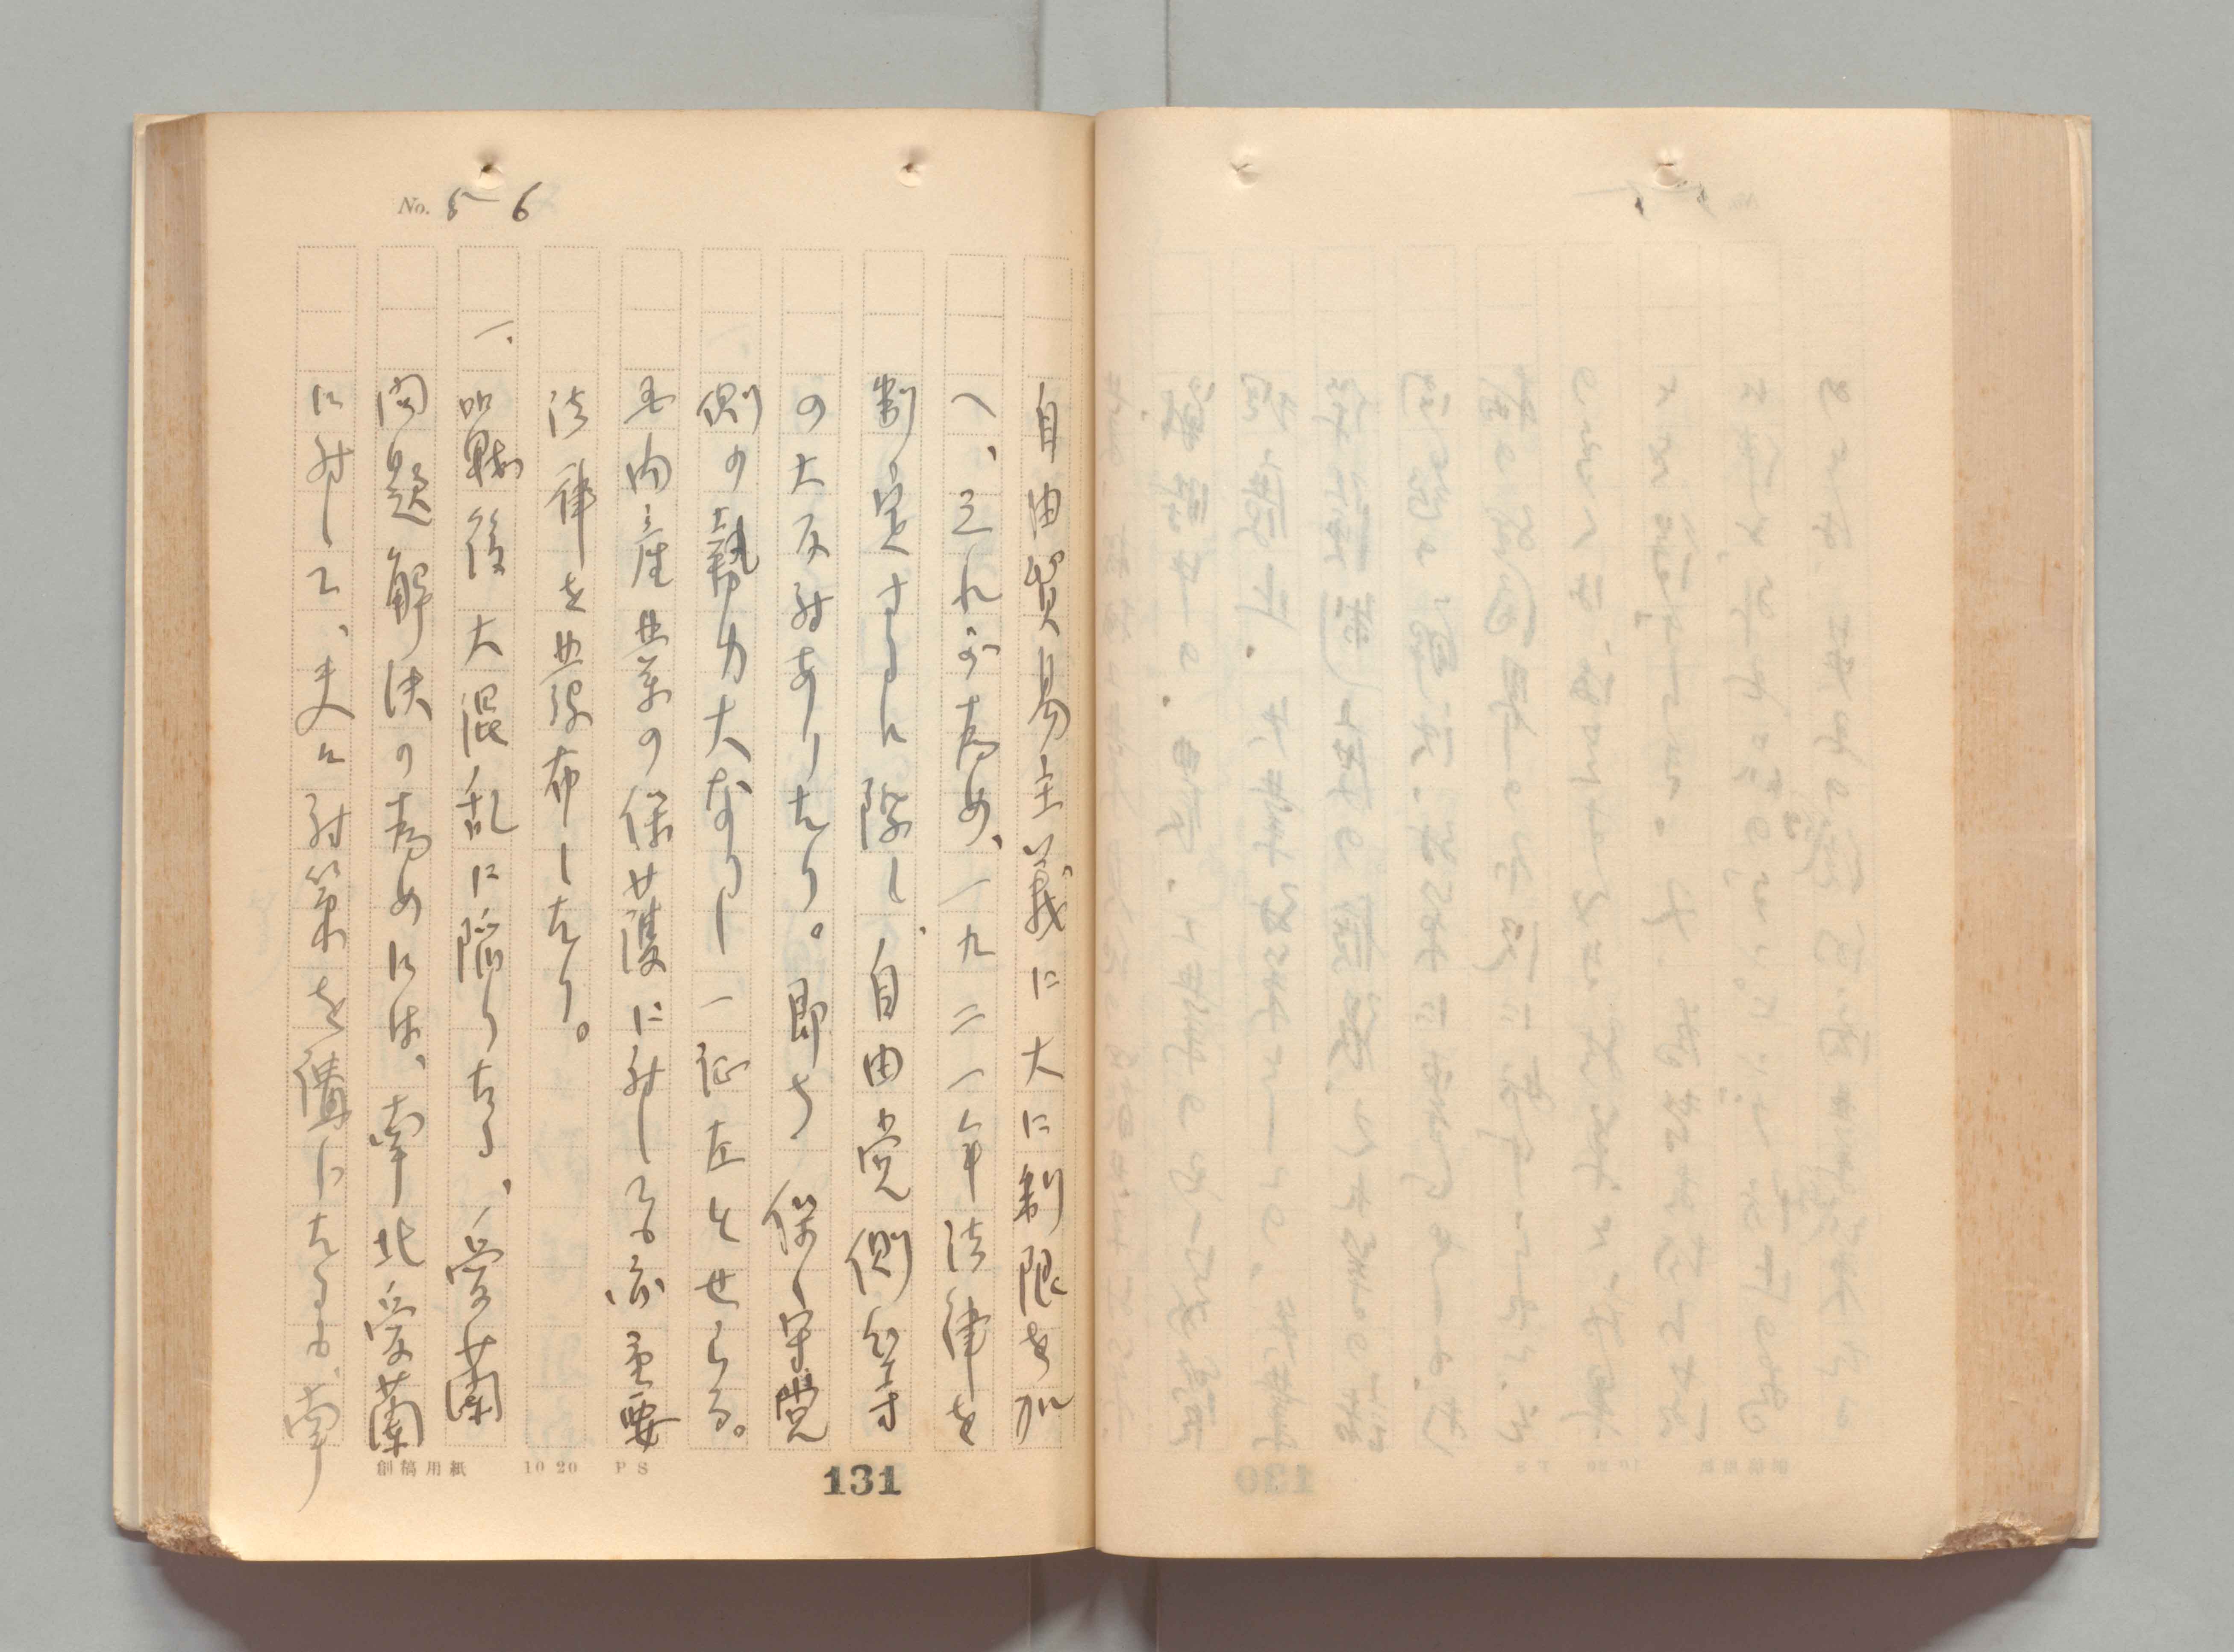 No. 5-6
自由貿易主義に大に制限を加
へ、之れが為め、一九二一年法律を
制定するに際し、自由党側
の大反対ありたり。即ち 保守党
側の勢力大なりし一証左とせらる。
国内産業の保護に対しても亦重要
法律を
一、欧戦後大混乱に陥りたる、愛蘭
問題解決の為めには、南北愛蘭
に対して、夫々対策を講じたるも、南
創稿用紙 10 20 PS
131